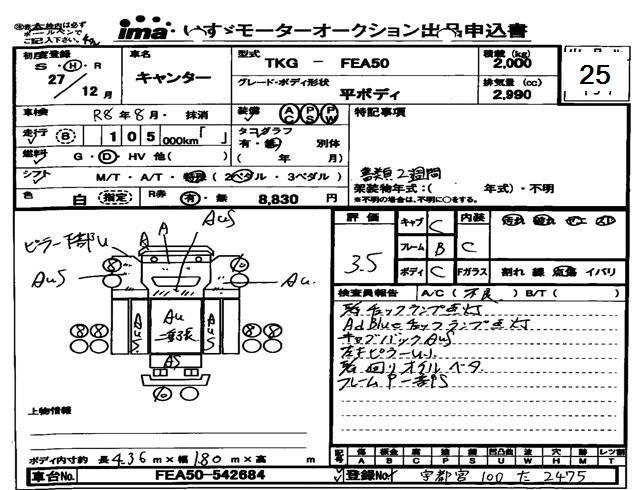 ※太枠内は必ず
ボールペンで
ご記入下さい。
ima いすゞモーターオークション出品申込書
初度登録 S・H・R 27 / 12月
車名 キャンター
型式 TKG - FEA50
積載(kg) 2,000
25
グレード・ボディ形状 平ボディ
排気量(cc) 2,990
車検 R8年8月・抹消
装備 AC PS PW
特記事項
走行 B 105,000km「 」
タコグラフ 有・無 別体 ( 年 月)
燃料 G・D・HV 他( )
書類2週間
シフト M/T・A/T・特殊(2ペダル・3ペダル)
架装物年式:( 年式)・不明
※不明の場合は、不明に○をする。
色 白 指定 R券 有・無 8,830円
評価 3.5
キャブ C 内装 C 汚れ 破れ コゲ スレ
フレーム B
ボディ C Fガラス 割れ 線 点傷 イバリ
検査員報告 A/C(不良) B/T( )
チェックランプ点灯
AdBlueチェックランプ点灯
キャブバックAuS
左右ピラーU
回りオイル ベタ
フレーム P 一部PS
ピラー下部U
AuS
A
A
AuS
Au
8
8
AuS
Au
二張
AuS
AS
上物情報
ボディ内寸約 長4.36m×幅1.80m×高 m
記号 傷A 板金B 腐C 塗P 錆S 凹凸曲U 波W 穴H 跡M レンツ割T
車台No. FEA50-542684
登録No. 宇都宮 100 た 2475